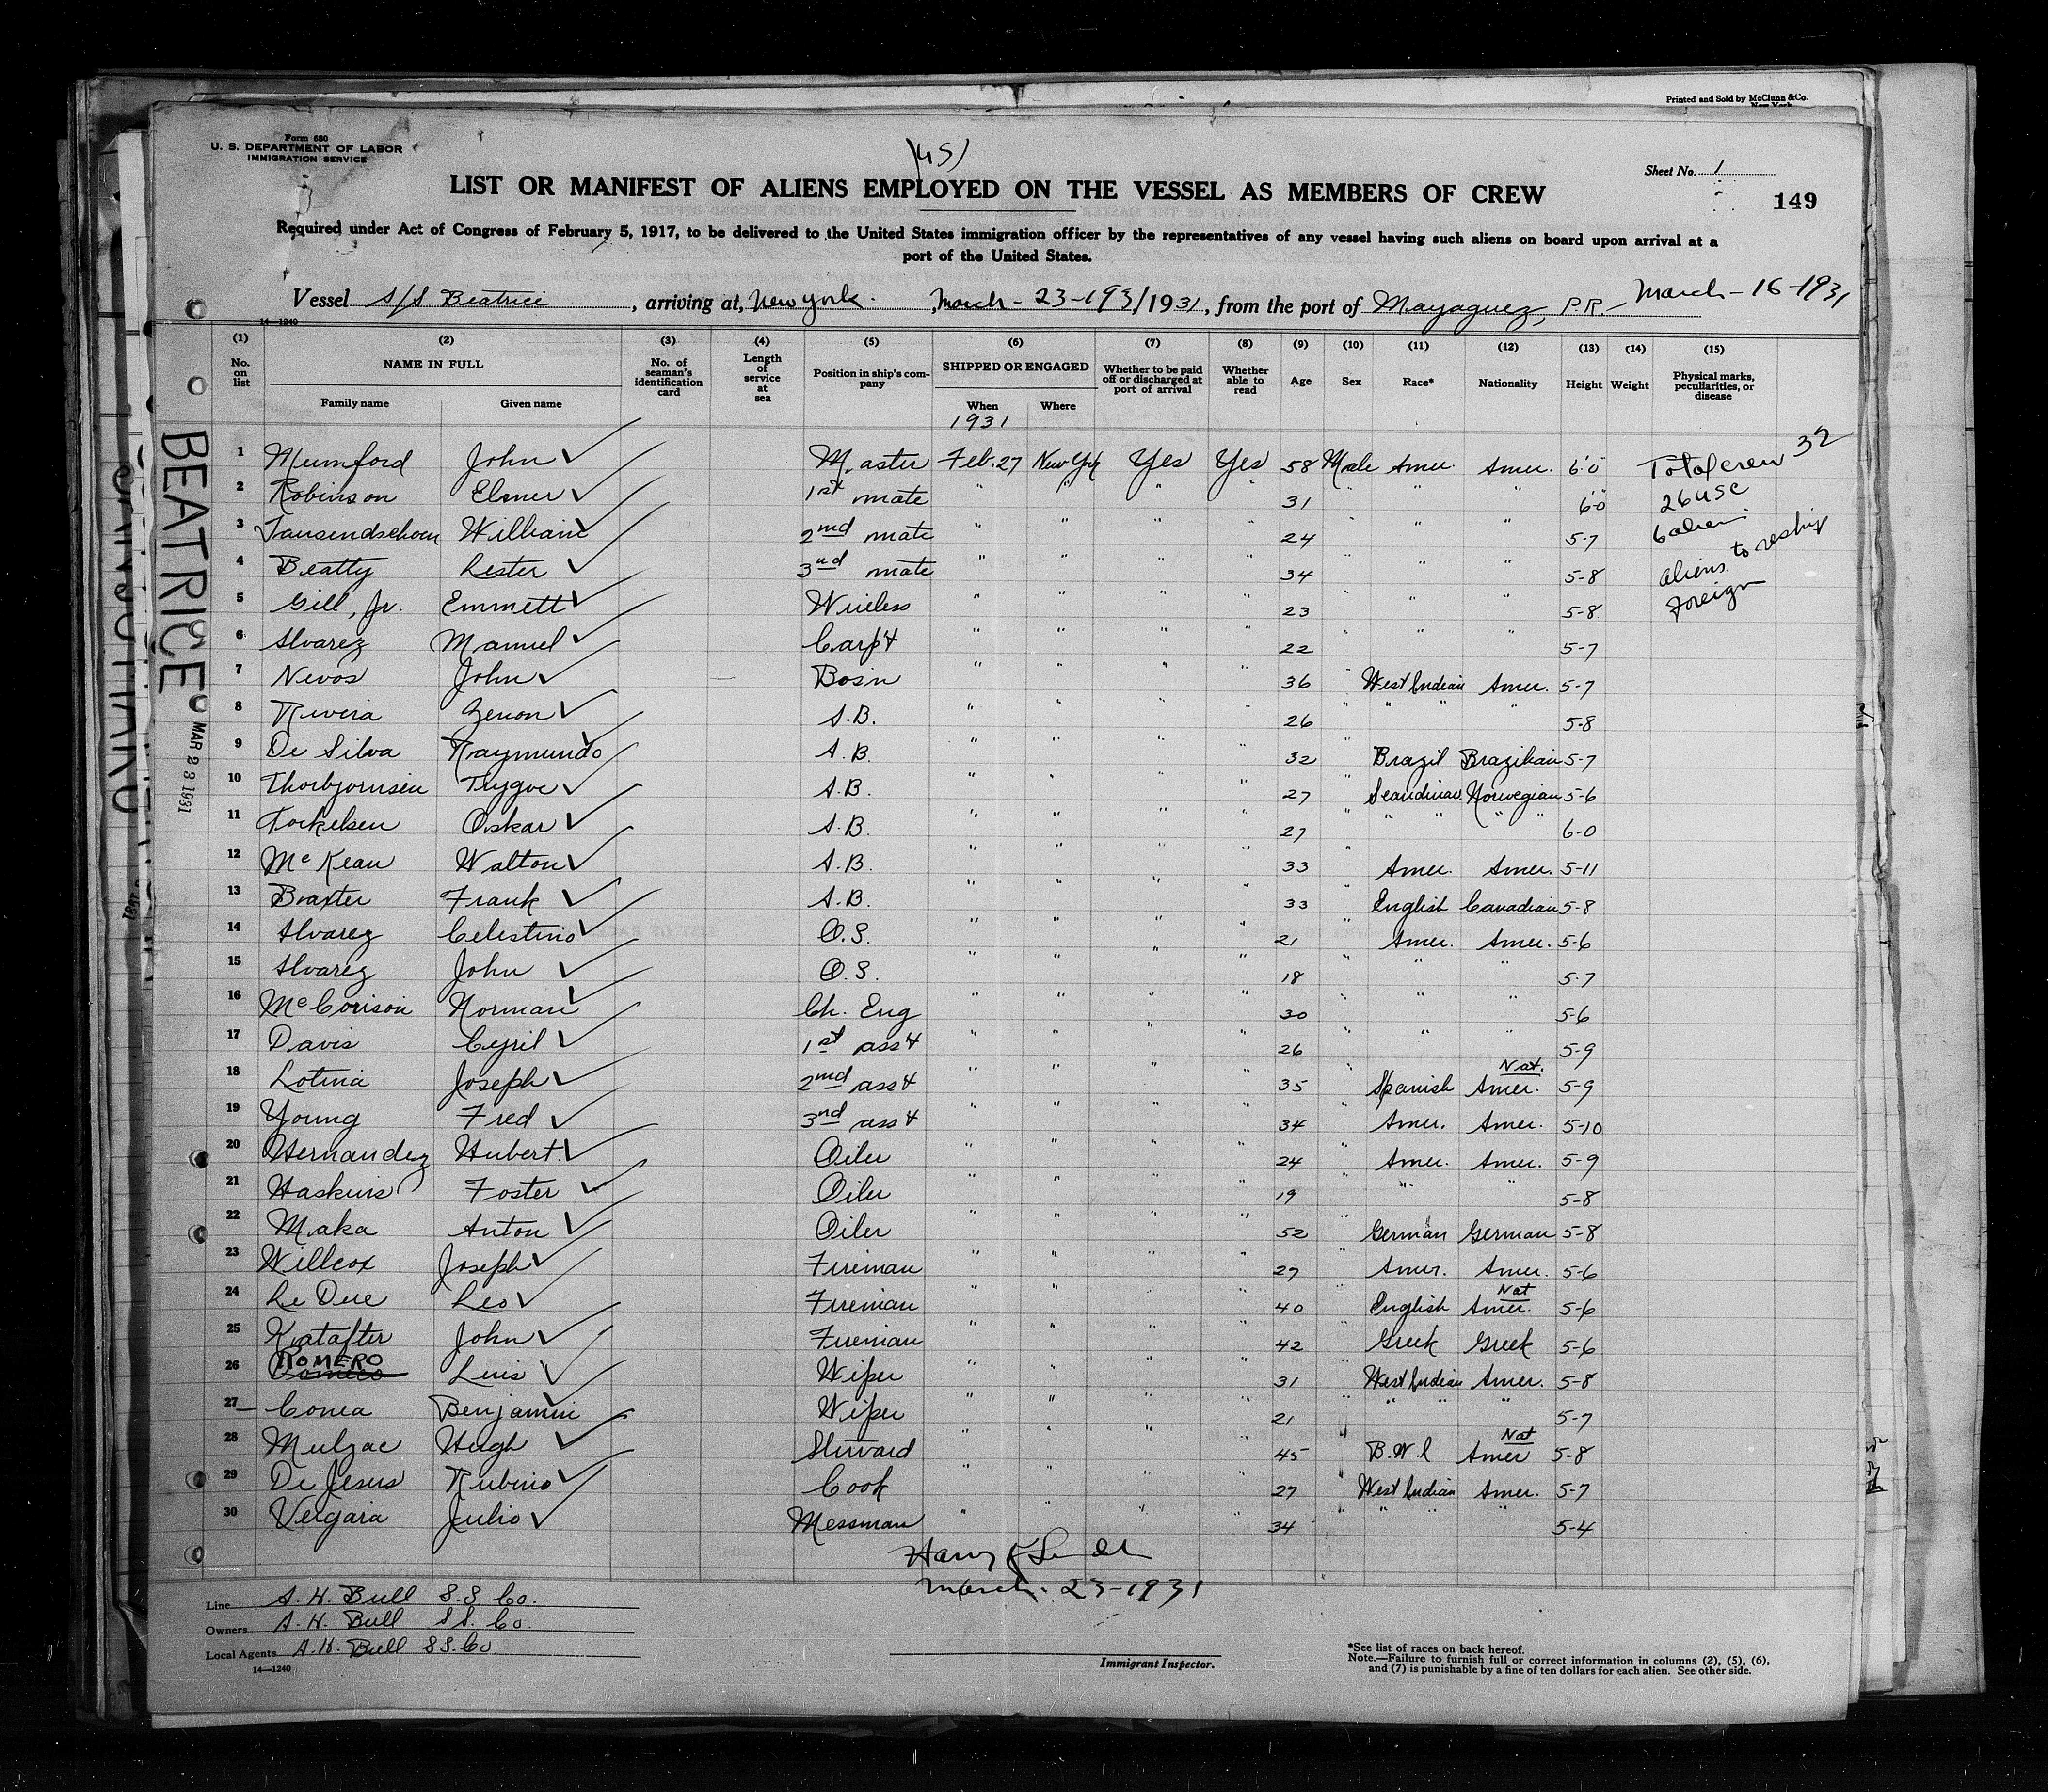 Printed and Sold by McClunn & Co.
New York
Form 680
U. S. DEPARTMENT OF LABOR
IMMIGRATION SERVICE
Sheet No. 1
LIST OR MANIFEST OF ALIENS EMPLOYED ON THE VESSEL AS MEMBERS OF CREW
149
Required under Act of Congress of February 5, 1917, to be delivered to the United States immigration officer by the representatives of any vessel having such aliens on board upon arrival at a
port of the United States.
Vessel S/S Beatrice, arriving at, New York. , March - 23-1931/1931, from the port of Mayaguez, P.R.- March-16-1931
14—1240
(1) (2) (3) (4) (5) (6) (7) (8) (9) (10) (11) (12) (13) (14) (15)
No. on list NAME IN FULL No. of seaman's identification card Length of service at sea Position in ship's company SHIPPED OR ENGAGED Whether to be paid off or discharged at port of arrival Whether able to read Age Sex Race* Nationality Height Weight Physical marks, peculiarities, or disease
Family name Given name When Where
1931
1 Mumford John Master Feb. 27 New York Yes Yes 58 Male Amer. Amer. 6'0 Total crew 32
2 Robinson Elmer 1st mate " " " " 31 " " " 6'0 26 USC
3 Tausendschoen William 2nd mate " " " " 24 " " " 5-7 6 aliens
4 Beatty Lester 3nd mate " " " " 34 " " " 5-8 aliens to reship
5 Gill, Jr. Emmett Wireless " " " " 23 " " " 5-8 foreign
6 Alvarez Manuel Carpt " " " " 22 " " " 5-7
7 Nevos John Bosn " " " " 36 " West Indian Amer. 5-7
8 Rivera Zenon A.B. " " " " 26 " " " " 5-8
9 De Silva Raymundo A.B. " " " " 32 " Brazil Brazilian 5-7
10 Thorbjornsen Trygve A.B. " " " " 27 " Scandinav. Norwegian 5-6
11 Torkelsen Oskar A.B. " " " " 27 " " " " " 6-0
12 McKean Walton A.B. " " " " 33 " Amer. Amer. 5-11
13 Baxter Frank A.B. " " " " 33 " English Canadian 5-8
14 Alvarez Celestino O.S. " " " " 21 " Amer. Amer. 5-6
15 Alvarez John O.S. " " " " 18 " " " 5-7
16 McCorison Norman Ch. Eng " " " " 30 " " " 5-6
17 Davis Cyril 1st asst " " " " 26 " " " 5-9
18 Lotina Joseph 2nd asst " " " " 35 " Spanish Nat. Amer. 5-9
19 Young Fred 3nd asst " " " " 34 " Amer. Amer. 5-10
20 Hernandez Hubert. Oiler " " " " 24 " Amer. Amer. 5-9
21 Haskins Foster Oiler " " " " 19 " " " 5-8
22 Maka Anton Oiler " " " " 52 " German German 5-8
23 Willcox Joseph Fireman " " " " 27 " Amer. Amer. 5-6
24 Le Dere Leo Fireman " " " " 40 " English Nat Amer. 5-6
25 Katafter John Fireman " " " " 42 " Greek Greek 5-6
26 ROMERO Luis Wiper " " " " 31 " West Indian Amer. 5-8
27 Conea Benjamin Wiper " " " " 21 " " " " 5-7
28 Mulzac Hugh Steward " " " " 45 " B.W.I Nat Amer 5-8
29 De Jesus Rubino Cook " " " " 27 " West Indian Amer. 5-7
30 Vergara Julio Messman " " " " 34 " " " " 5-4
March. 23-1931
Line A. H. Bull S.S. Co.
Owners A. H. Bull S.S. Co.
Local Agents A. H. Bull S.S. Co
14—1240
Immigrant Inspector.
*See list of races on back hereof.
Note.—Failure to furnish full or correct information in columns (2), (5), (6),
and (7) is punishable by a fine of ten dollars for each alien. See other side.
BEATRICE
MAR 23 1931